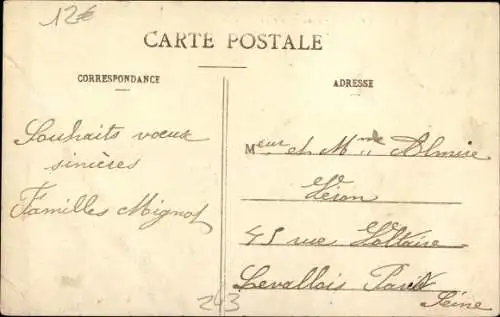 12€
CARTE POSTALE
CORRESPONDANCE
ADRESSE
Souhaits voeux
sincères
Familles Mignot
Meur et Mme Almire
Léon
45 rue Voltaire
Levallois Paris
Seine
243